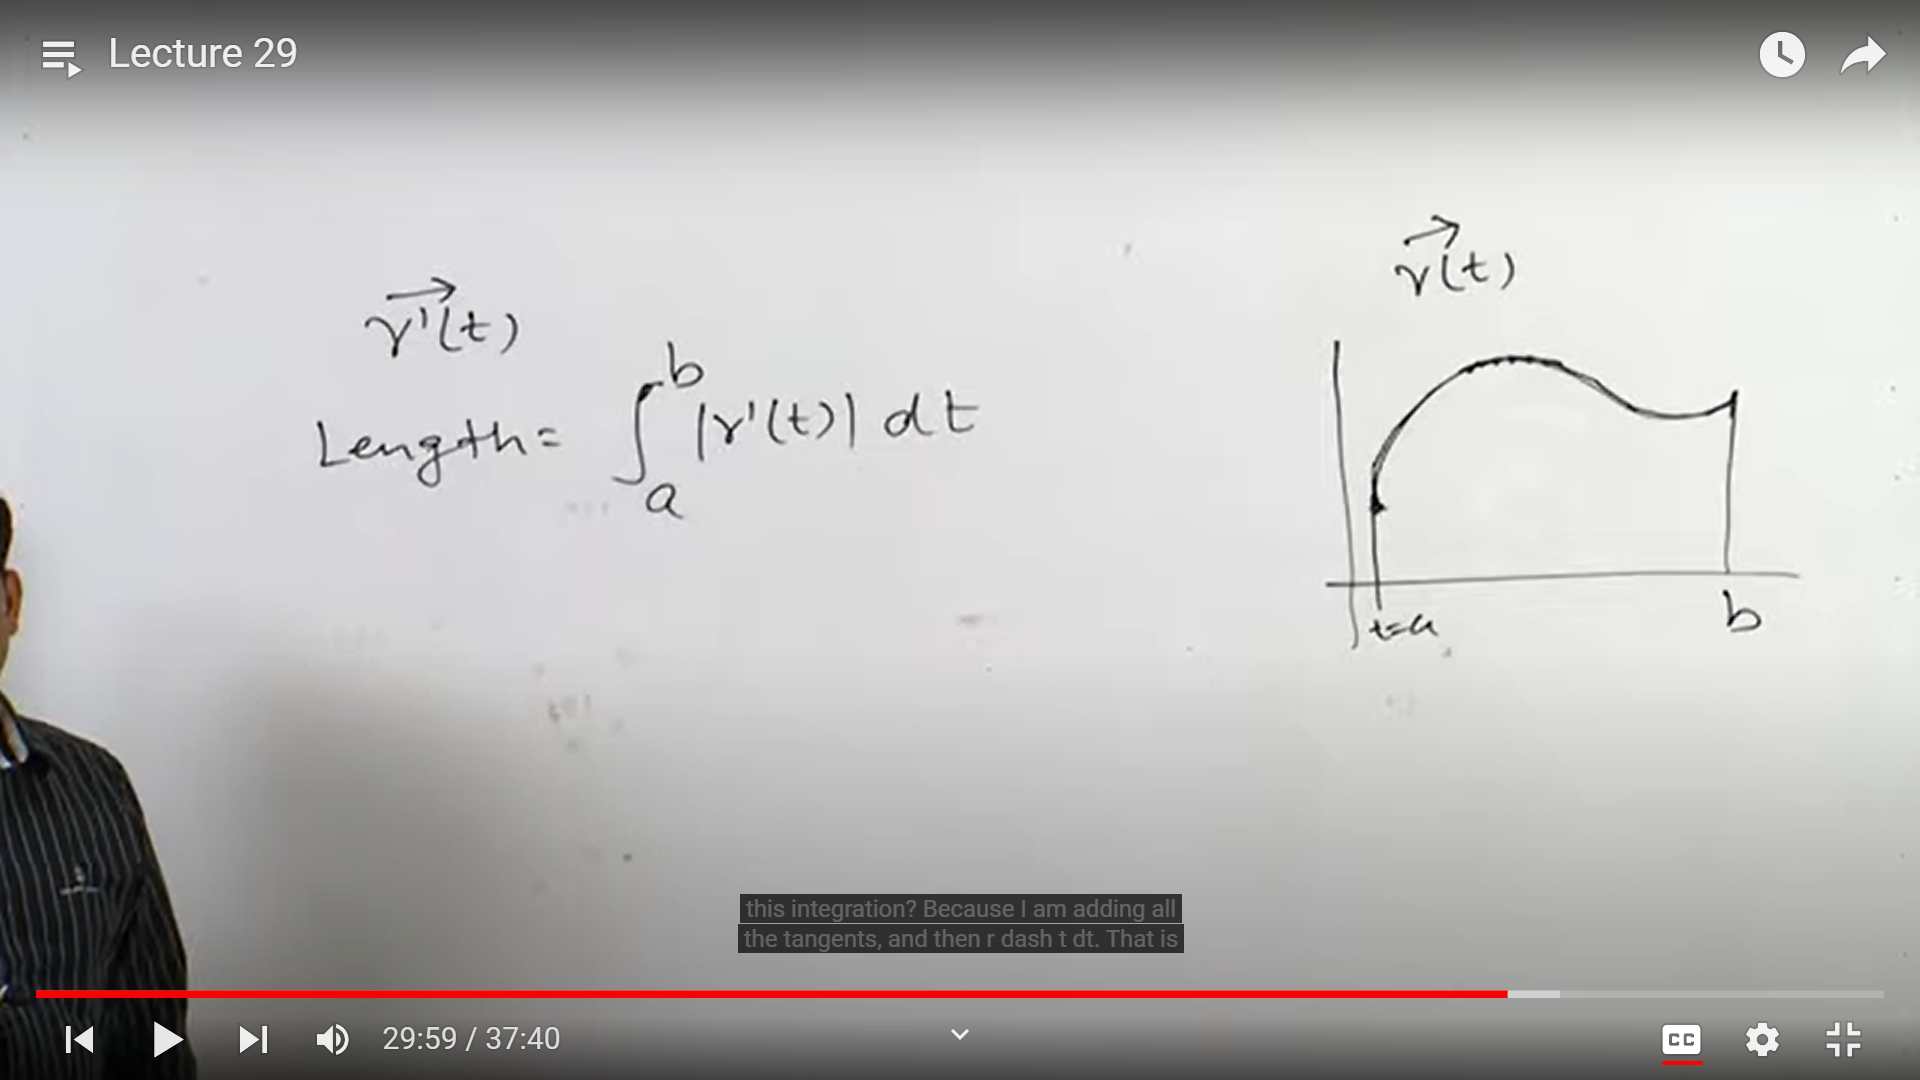 Lecture 29
r(t)
r'(t)
Length= ∫_a^b |r'(t)| dt
t=a
b
this integration? Because I am adding all
the tangents, and then r dash t dt. That is
29:59 / 37:40
CC